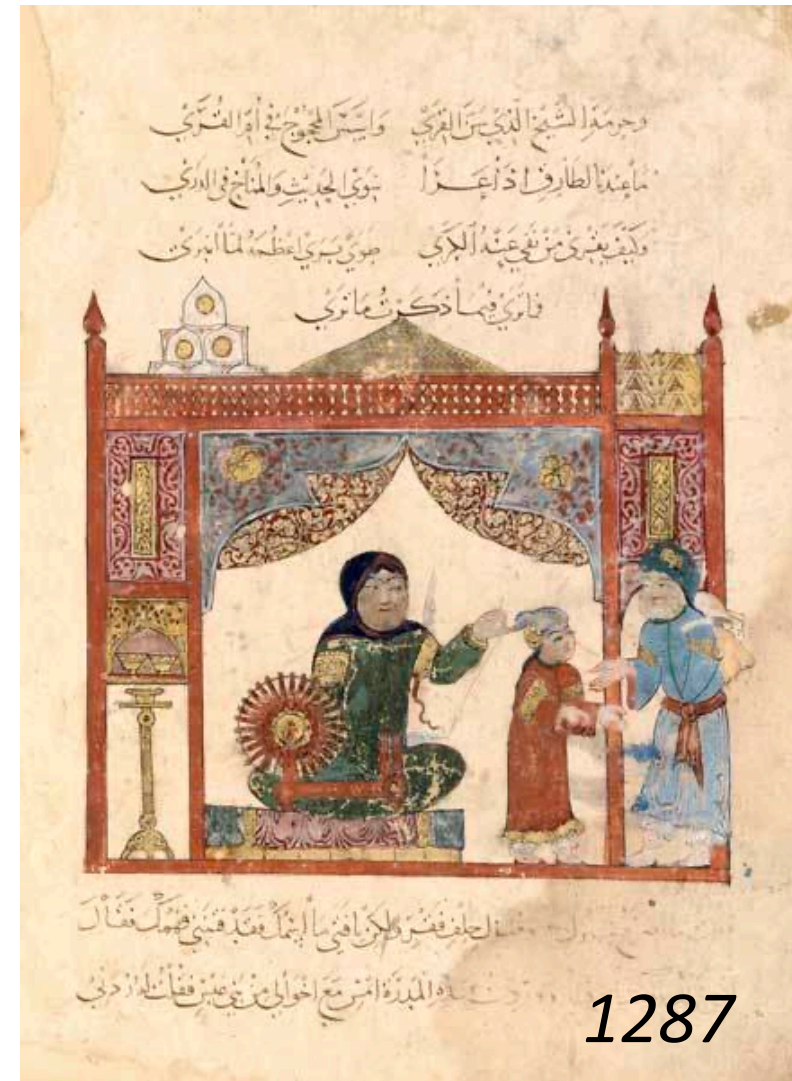 وحرمة الشيخ الذي سن القرى وأسس المحجوج في أم القرى
ما عندنا لطارق إذا عرا سوى الحديث والمناخ في الذرى
وكيف يقري من نفى عنه الكرى طوى برى أعظمه لما انبرى
فما ترى فيما ذكرت ما ترى
حلف فقر ولكن يا فتى ما اسمك فقد فتنني فهمك فقال
المدرة أمس مع أخوالي من بني عبس فقلت له زدني
1287